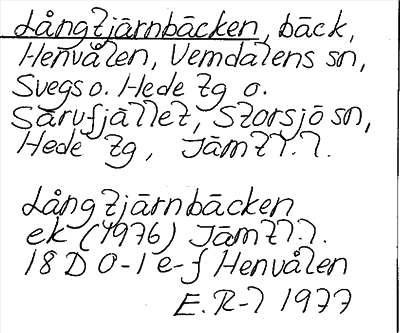 Långtjärnbäcken, bäck,
Henvålen, Vemdalens sn,
Svegs o. Hede tg o.
Särvfjället, Storsjö sn,
Hede tg, Jämtl.l.
Långtjärnbäcken
ek (1976) Jämtl.l.
18D 0-1 e-f Henvålen
E.R-l 1977